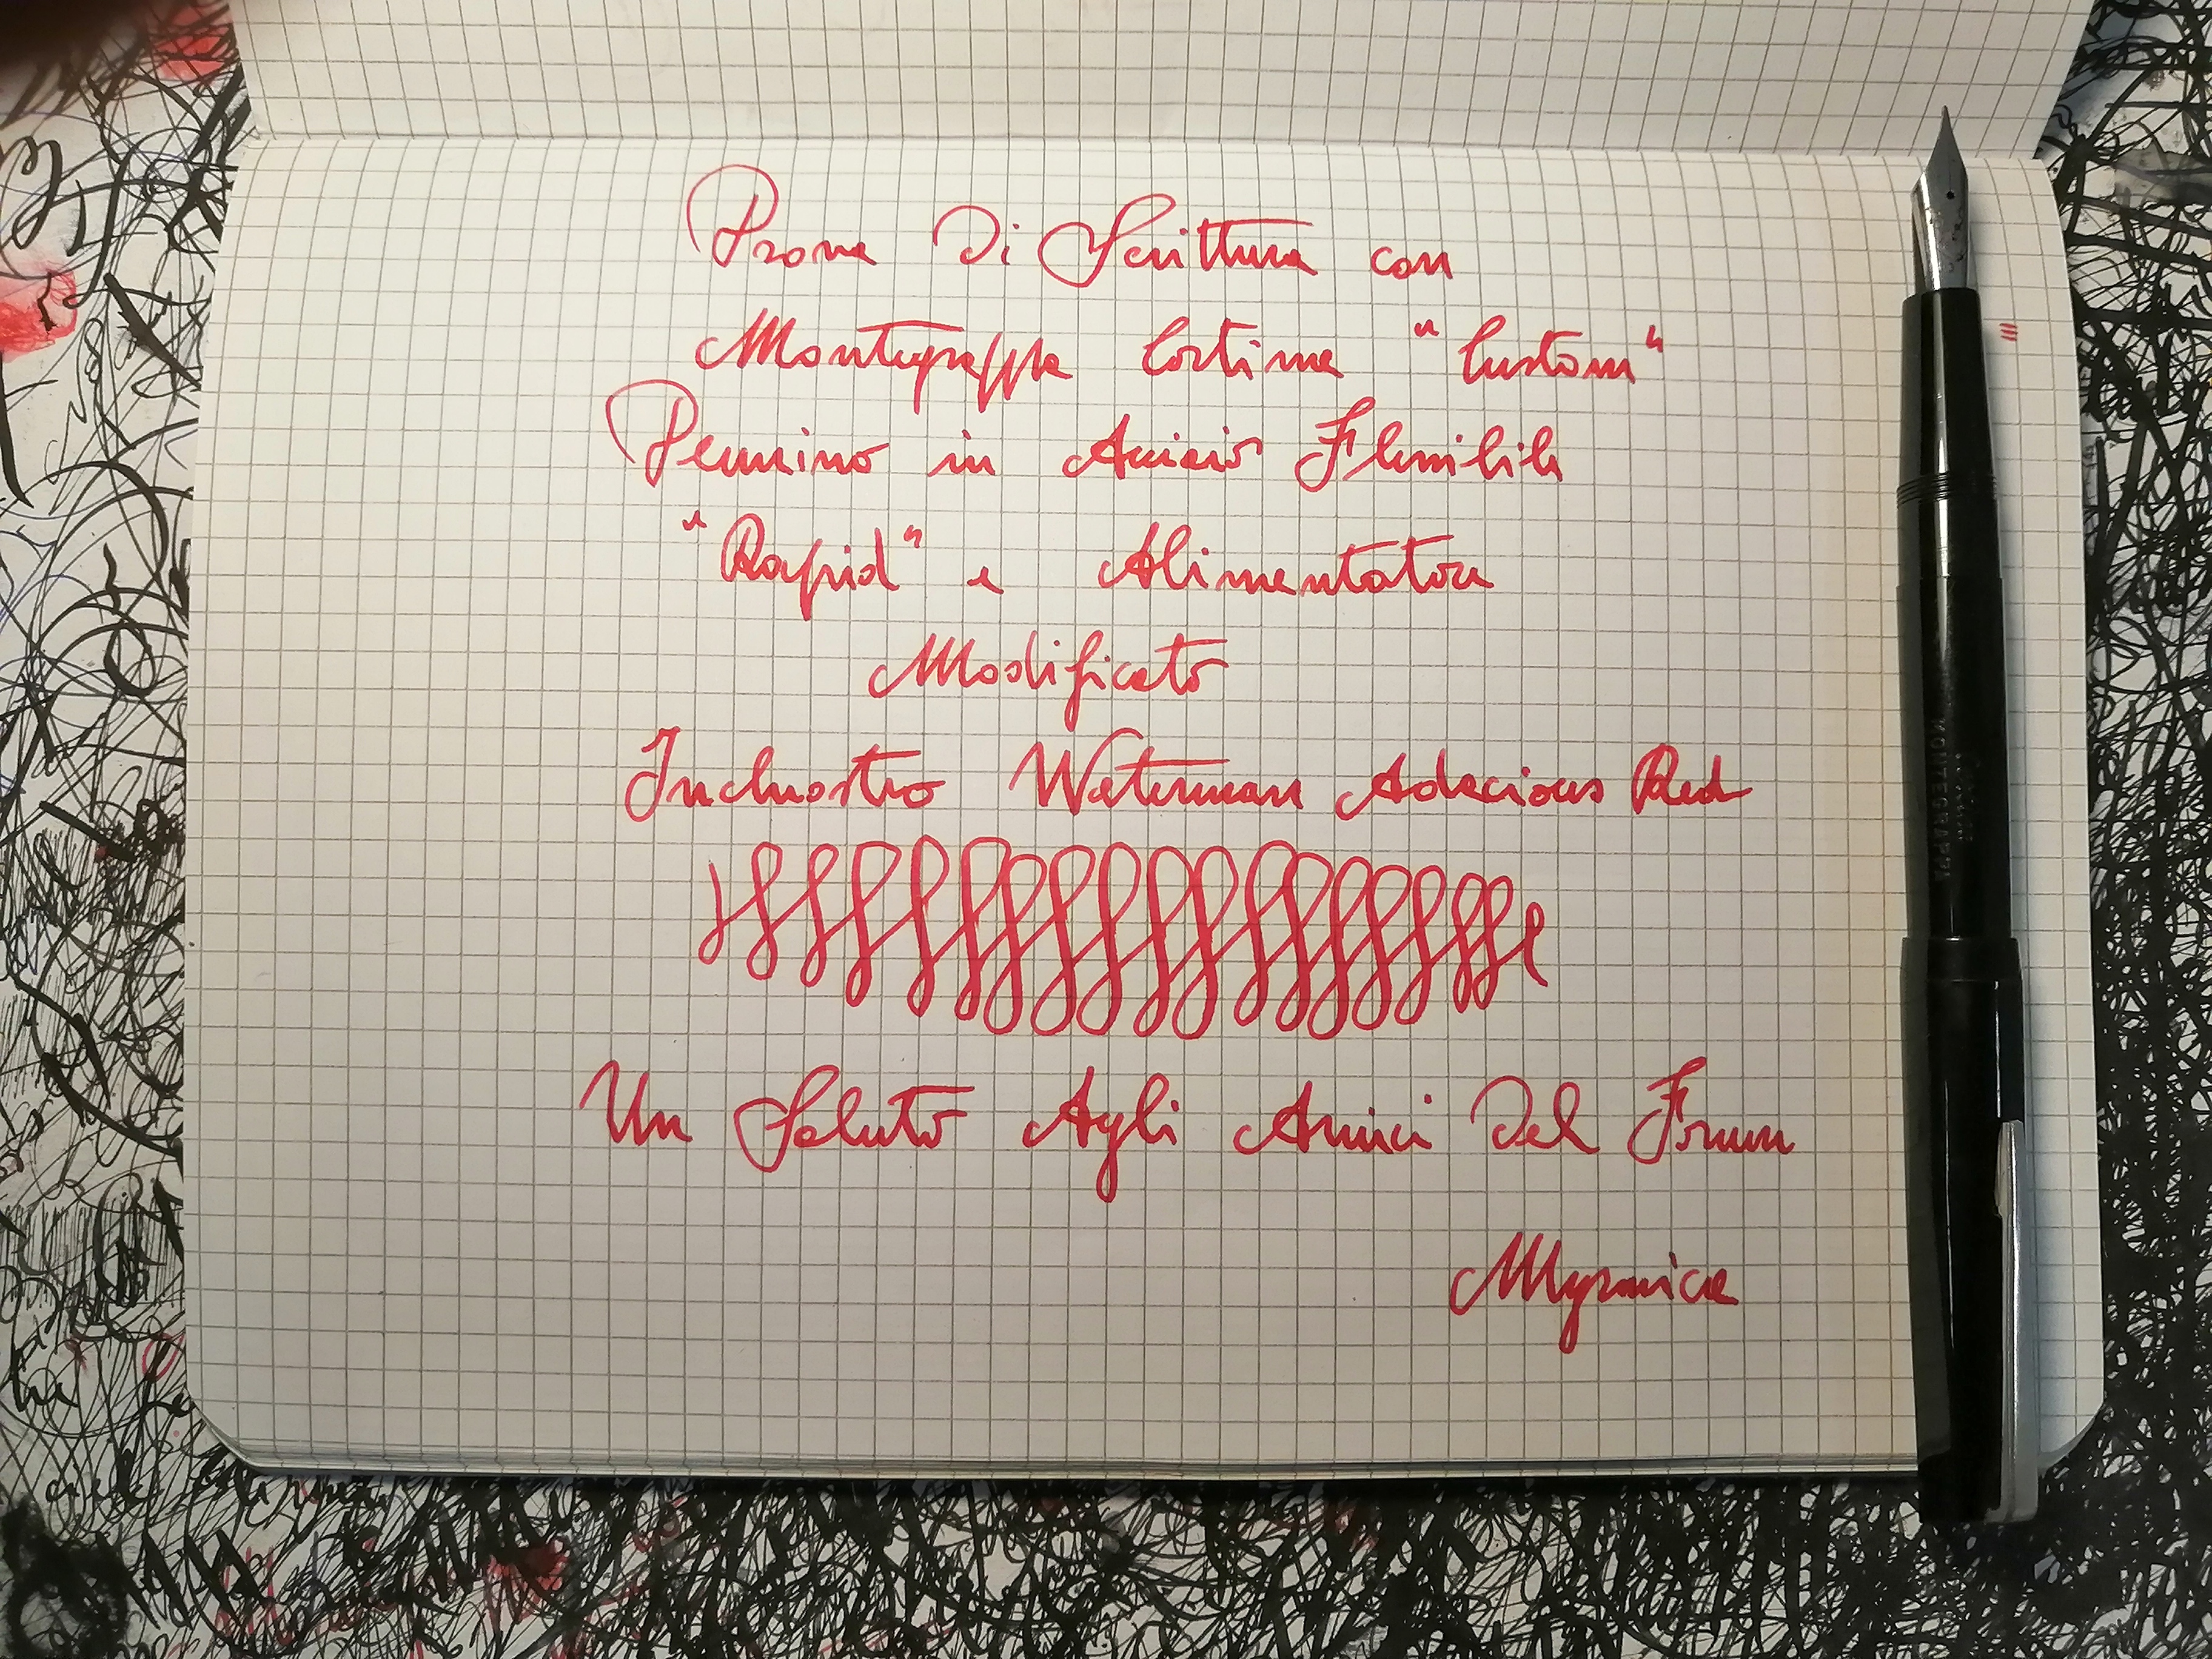 Prova Di Scrittura con
Montegrappa Cortina "Custom"
Pennino in Acciaio Flessibile
"Rapid" e Alimentatore
Modificato
Inchiostro Waterman Adacious Red
Un Saluto Agli Amici Del Forum
Myrmica
MONTEGRAPPA